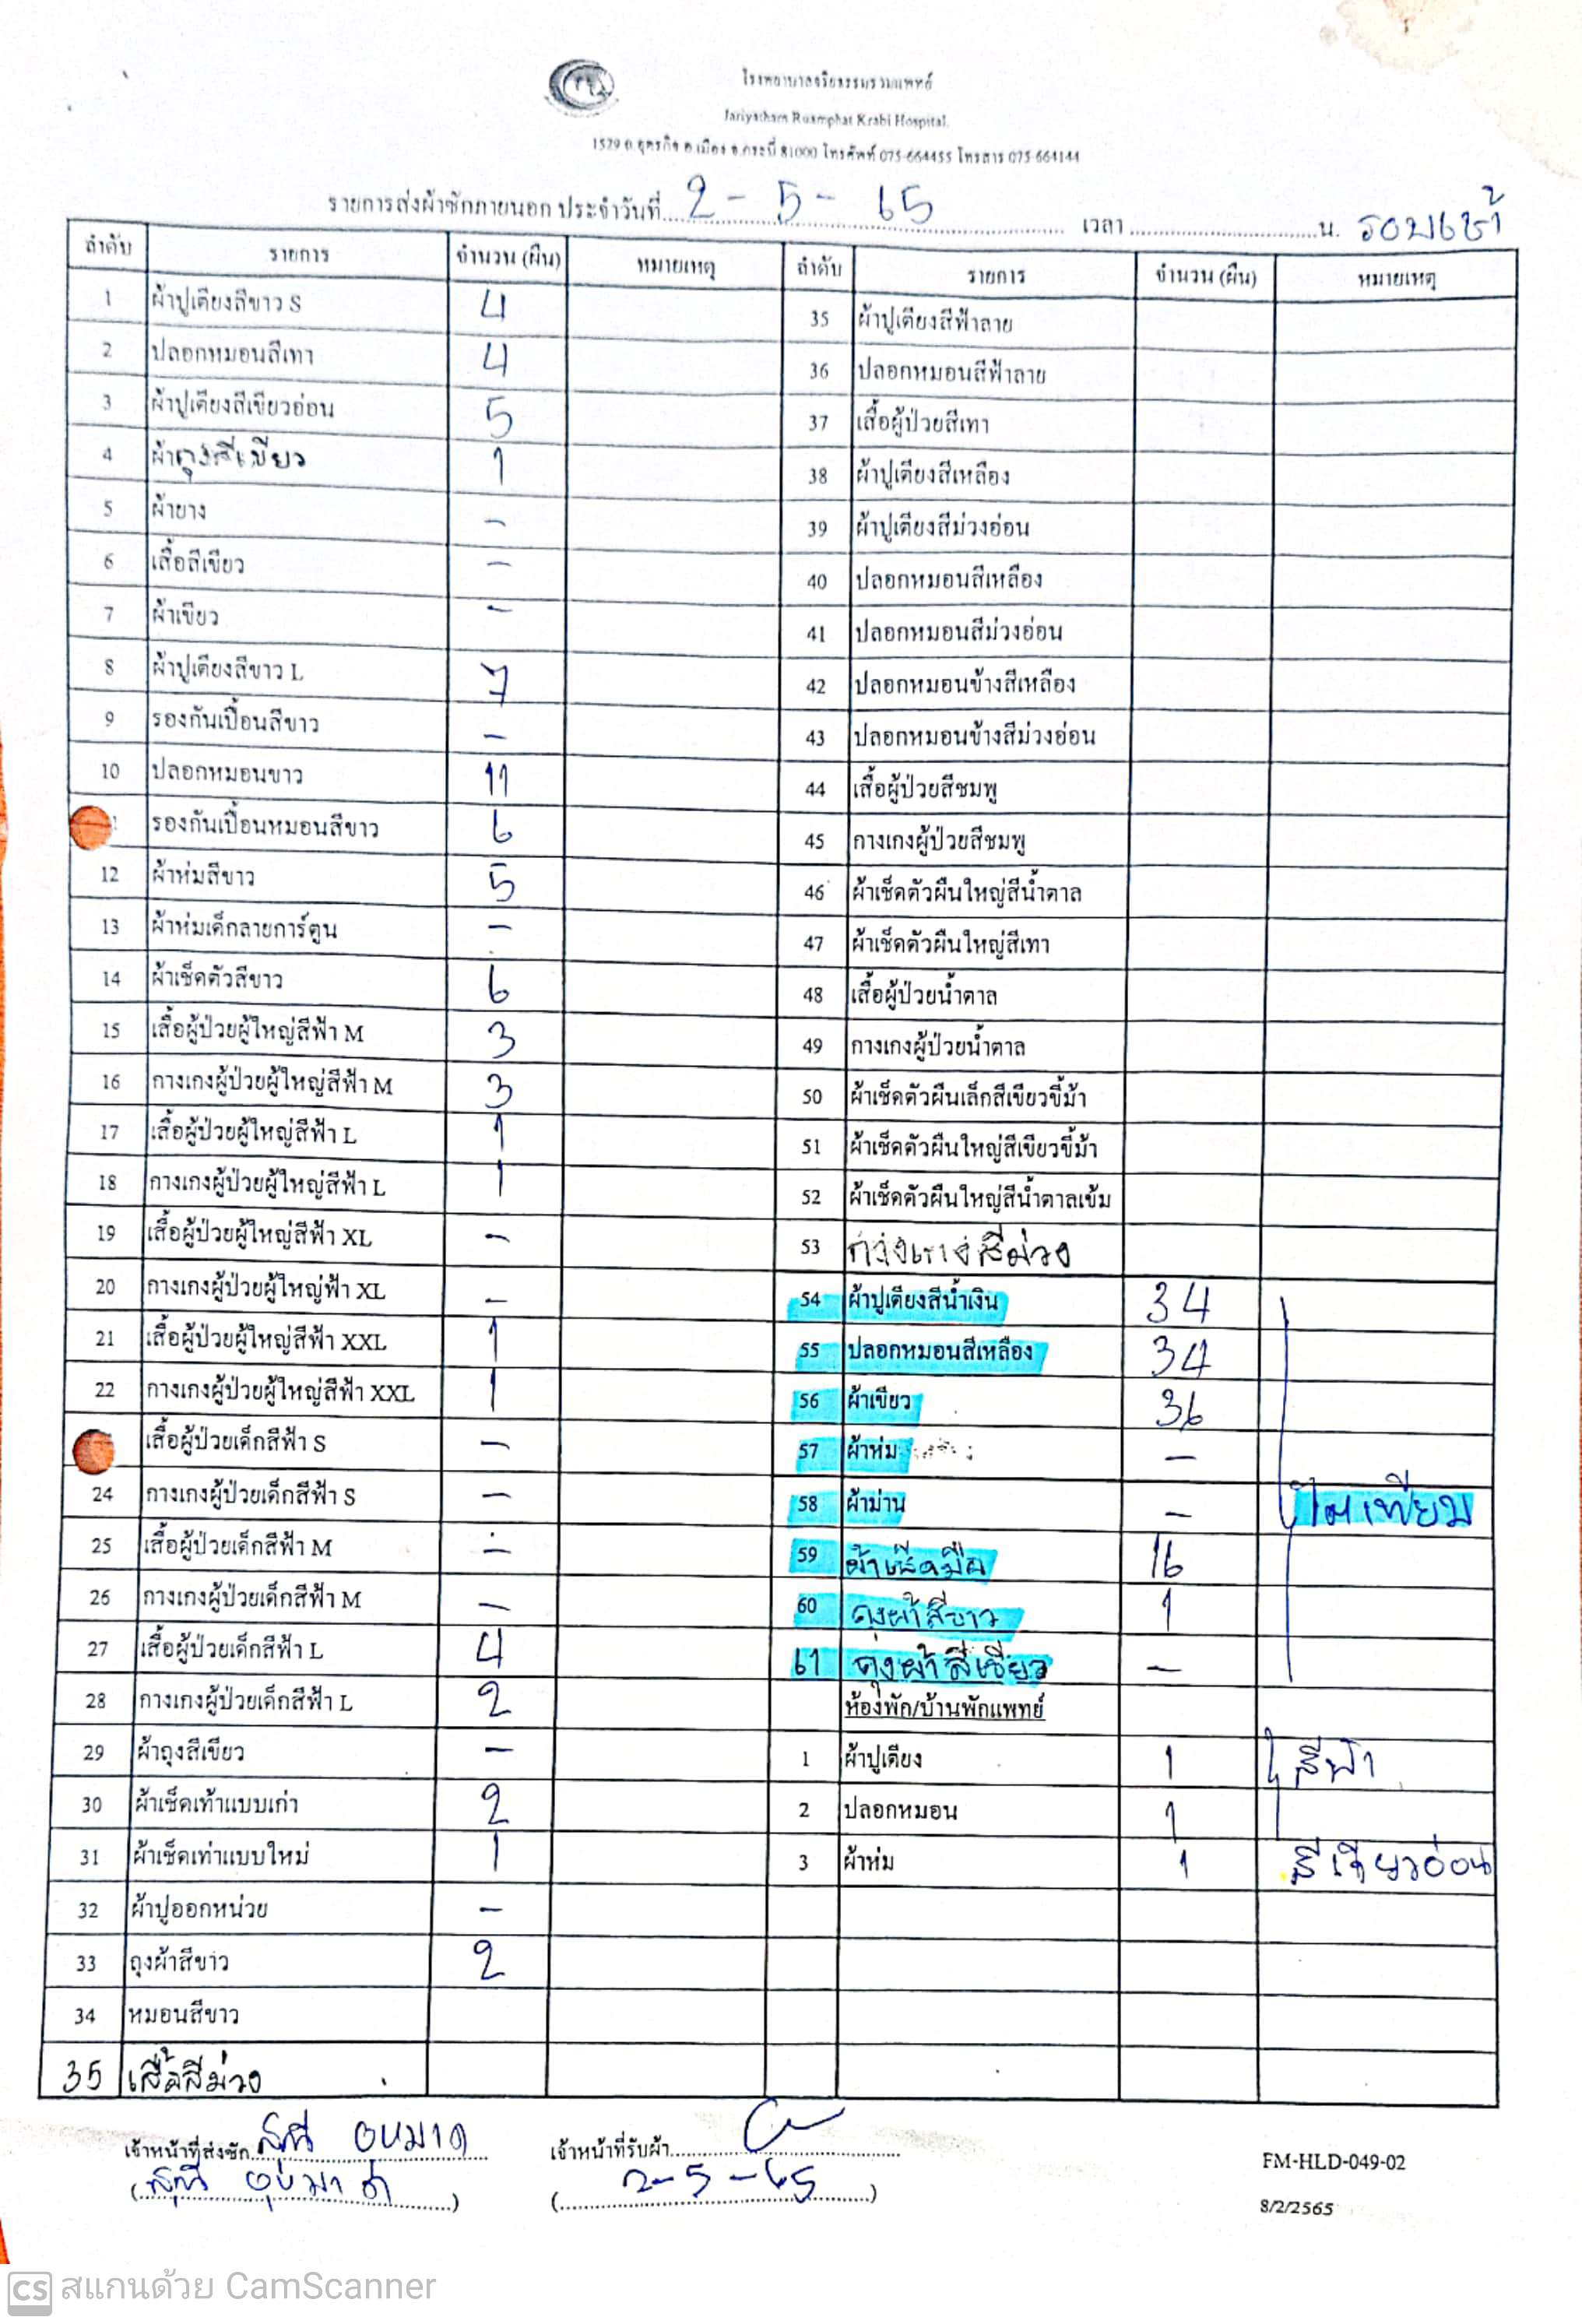 โรงพยาบาลจริยธรรมรวมแพทย์
Jariyatham Ruamphat Krabi Hospital.
1529 ถ.อุตรกิจ อ.เมือง จ.กระบี่ 81000 โทรศัพท์ 075-664455 โทรสาร 075-664144
รายการส่งผ้าซักภายนอก ประจำวันที่ 2-5-65 เวลา น. รอบเช้า
ลำดับ รายการ จำนวน (ผืน) หมายเหตุ ลำดับ รายการ จำนวน (ผืน) หมายเหตุ
1 ผ้าปูเตียงสีขาว S 4 35 ผ้าปูเตียงสีฟ้าลาย
2 ปลอกหมอนสีเทา 4 36 ปลอกหมอนสีฟ้าลาย
3 ผ้าปูเตียงสีเขียวอ่อน 5 37 เสื้อผู้ป่วยสีเทา
4 ผ้าถุงสีเขียว 1 38 ผ้าปูเตียงสีเหลือง
5 ผ้ายาง - 39 ผ้าปูเตียงสีม่วงอ่อน
6 เสื้อสีเขียว - 40 ปลอกหมอนสีเหลือง
7 ผ้าเขียว - 41 ปลอกหมอนสีม่วงอ่อน
8 ผ้าปูเตียงสีขาว L 7 42 ปลอกหมอนข้างสีเหลือง
9 รองกันเปื้อนสีขาว - 43 ปลอกหมอนข้างสีม่วงอ่อน
10 ปลอกหมอนขาว 11 44 เสื้อผู้ป่วยสีชมพู
รองกันเปื้อนหมอนสีขาว 6 45 กางเกงผู้ป่วยสีชมพู
12 ผ้าห่มสีขาว 5 46 ผ้าเช็ดตัวผืนใหญ่สีน้ำตาล
13 ผ้าห่มเด็กลายการ์ตูน - 47 ผ้าเช็ดตัวผืนใหญ่สีเทา
14 ผ้าเช็ดตัวสีขาว 6 48 เสื้อผู้ป่วยน้ำตาล
15 เสื้อผู้ป่วยผู้ใหญ่สีฟ้า M 3 49 กางเกงผู้ป่วยน้ำตาล
16 กางเกงผู้ป่วยผู้ใหญ่สีฟ้า M 3 50 ผ้าเช็ดตัวผืนเล็กสีเขียวขี้ม้า
17 เสื้อผู้ป่วยผู้ใหญ่สีฟ้า L 1 51 ผ้าเช็ดตัวผืนใหญ่สีเขียวขี้ม้า
18 กางเกงผู้ป่วยผู้ใหญ่สีฟ้า L 1 52 ผ้าเช็ดตัวผืนใหญ่สีน้ำตาลเข้ม
19 เสื้อผู้ป่วยผู้ใหญ่สีฟ้า XL - 53 กางเกงสีม่วง
20 กางเกงผู้ป่วยผู้ใหญ่ฟ้า XL - 54 ผ้าปูเตียงสีน้ำเงิน 34
21 เสื้อผู้ป่วยผู้ใหญ่สีฟ้า XXL 1 55 ปลอกหมอนสีเหลือง 34
22 กางเกงผู้ป่วยผู้ใหญ่สีฟ้า XXL 1 56 ผ้าเขียว 36
เสื้อผู้ป่วยเด็กสีฟ้า S - 57 ผ้าห่ม -
24 กางเกงผู้ป่วยเด็กสีฟ้า S - 58 ผ้าม่าน - ไตเทียม
25 เสื้อผู้ป่วยเด็กสีฟ้า M - 59 ผ้าเช็ดมือ 16
26 กางเกงผู้ป่วยเด็กสีฟ้า M - 60 ถุงผ้าสีขาว 1
27 เสื้อผู้ป่วยเด็กสีฟ้า L 4 61 ถุงผ้าสีเขียว -
28 กางเกงผู้ป่วยเด็กสีฟ้า L 2 ห้องพัก/บ้านพักแพทย์
29 ผ้าถุงสีเขียว - 1 ผ้าปูเตียง 1 สีฟ้า
30 ผ้าเช็ดเท้าแบบเก่า 2 2 ปลอกหมอน 1
31 ผ้าเช็ดเท่าแบบใหม่ 1 3 ผ้าห่ม 1 สีเขียวอ่อน
32 ผ้าปูออกหน่วย -
33 ถุงผ้าสีขาว 2
34 หมอนสีขาว
35 เสื้อสีม่วง
เจ้าหน้าที่ส่งซัก เจ้าหน้าที่รับผ้า
(2-5-65)
FM-HLD-049-02
8/2/2565
CS สแกนด้วย CamScanner